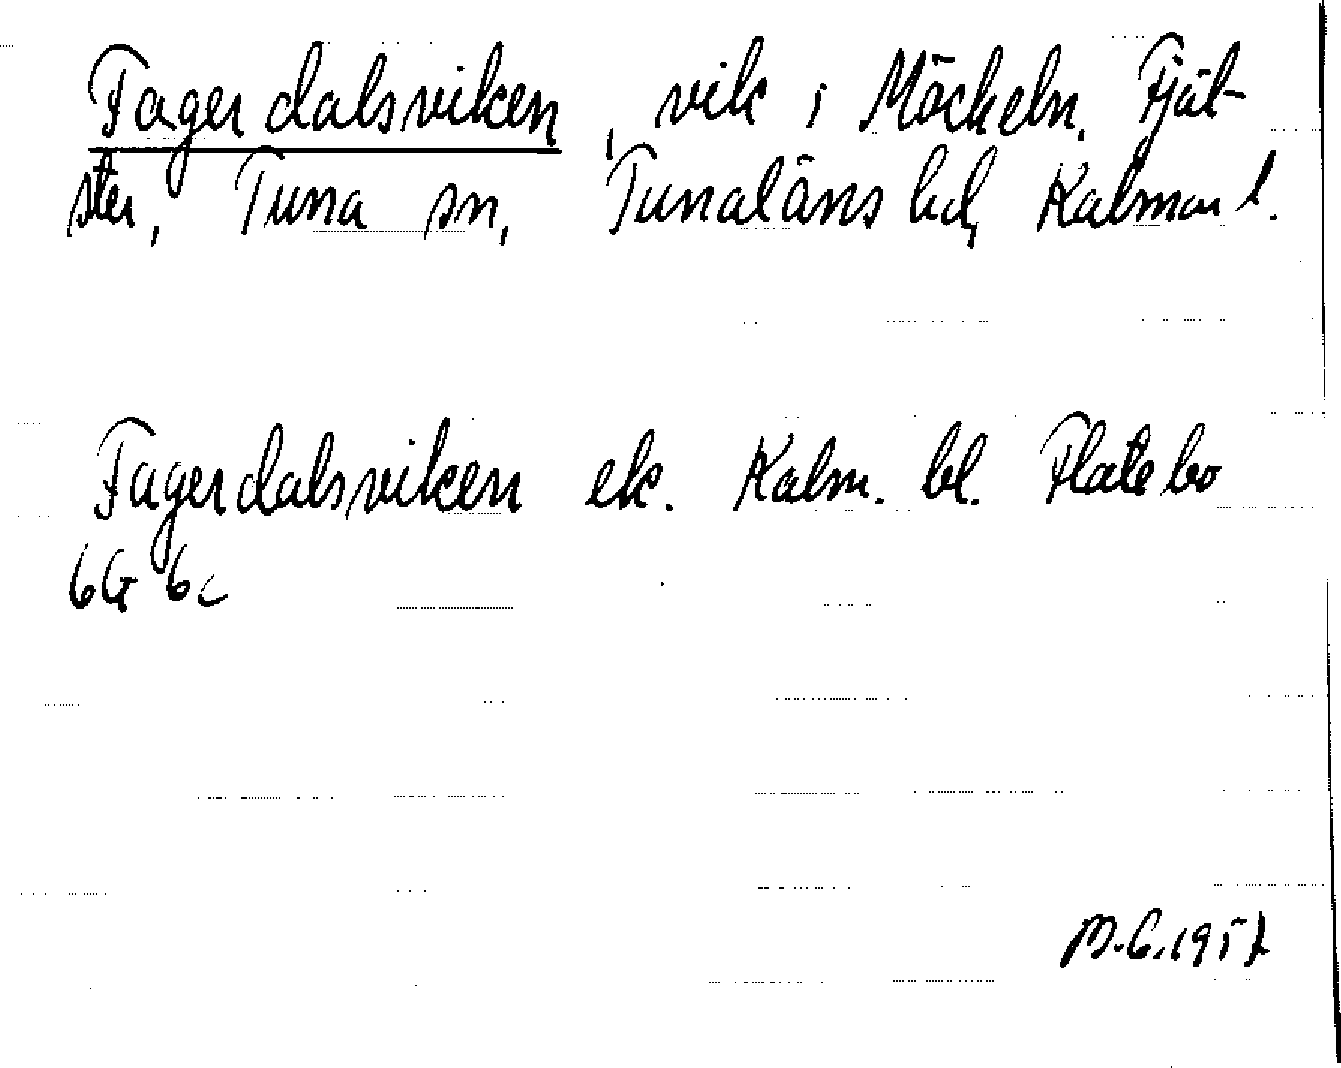 Fagerdalsviken, vik i Möckeln. Fjät-
ster, Tuna sn, Tunaläns hd, Kalmar l.
Fagerdalsviken ek. Kalm. bl. Flatebo
6G 6c